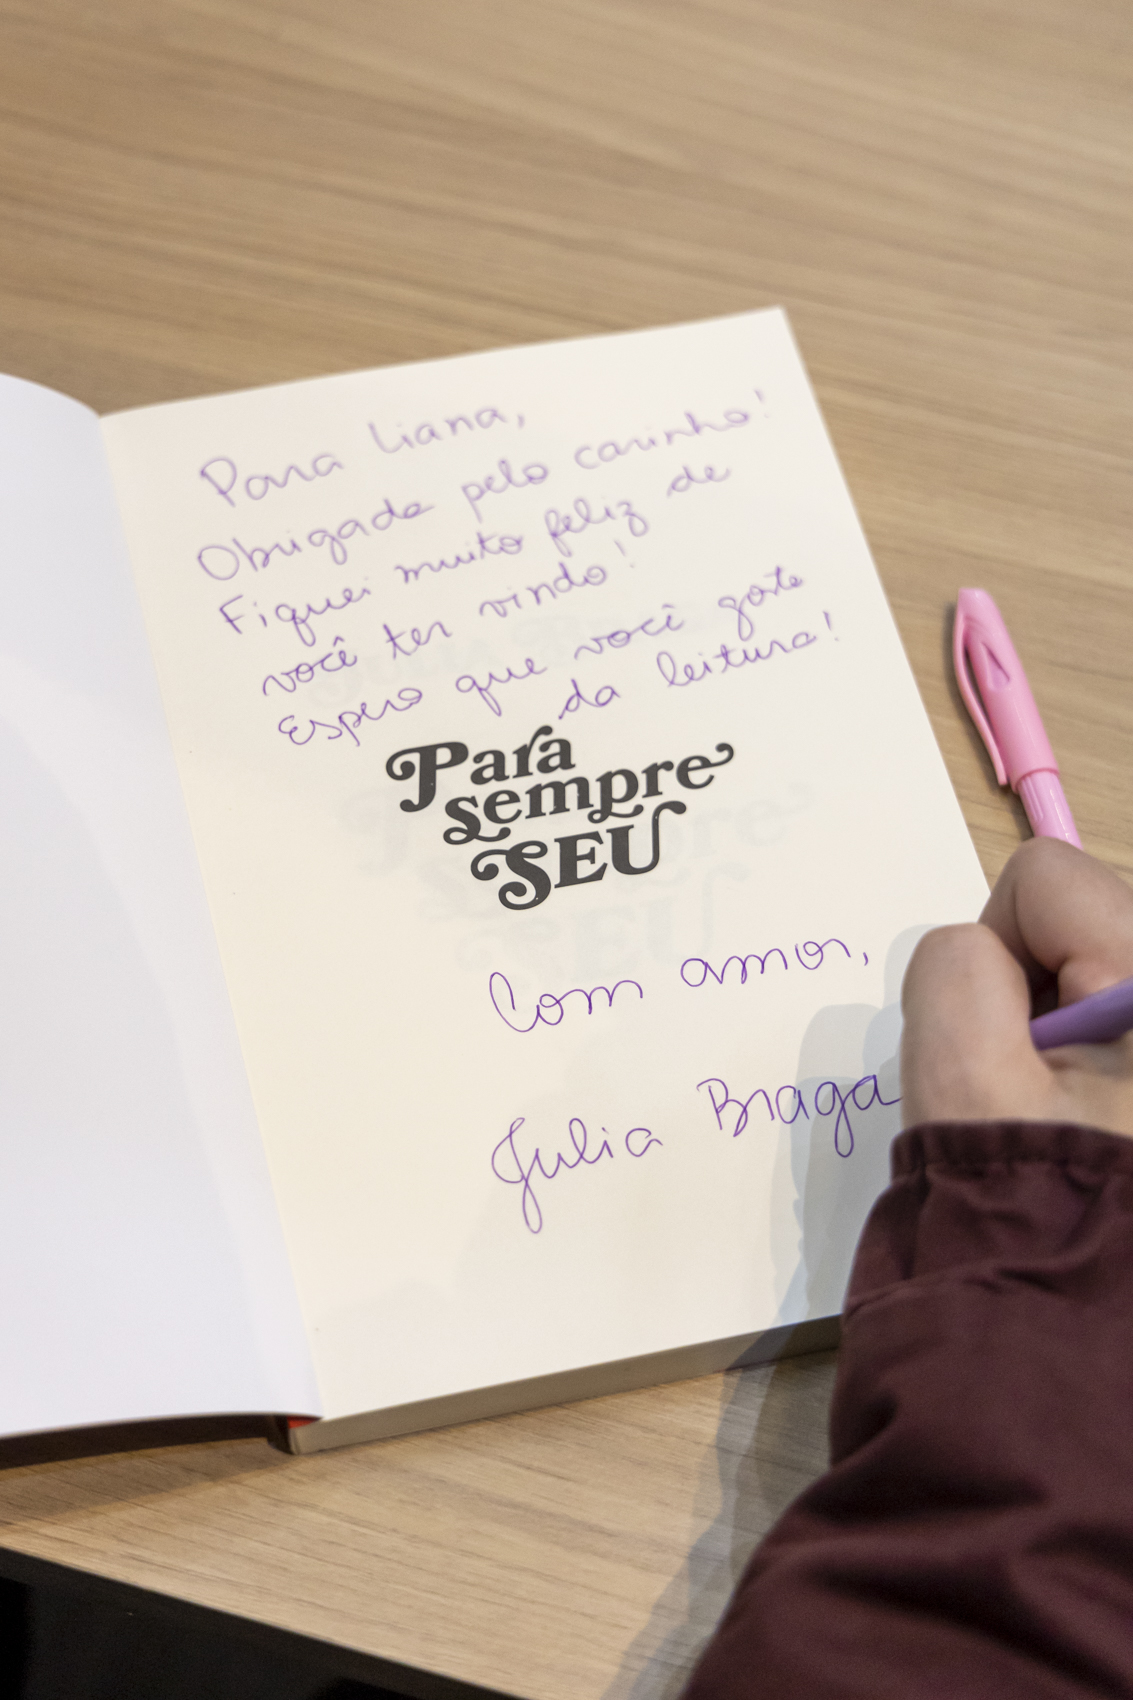 Para Liana,
Obrigada pelo carinho!
Fiquei muito feliz de
você ter vindo!
Espero que você goste
da leitura!
Para
sempre
SEU
Com amor,
Julia Braga